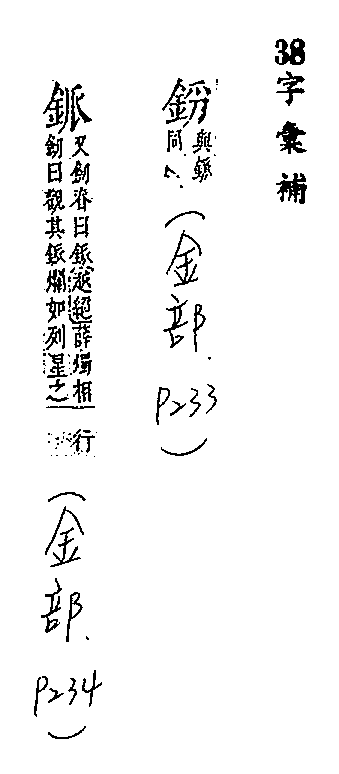 38字彙補
與鈲同
(金部.P233)
鈲
又劍脊曰鈲越絕薛燭相
劍曰觀其鈲爛如列星之
行
(金部.P234)